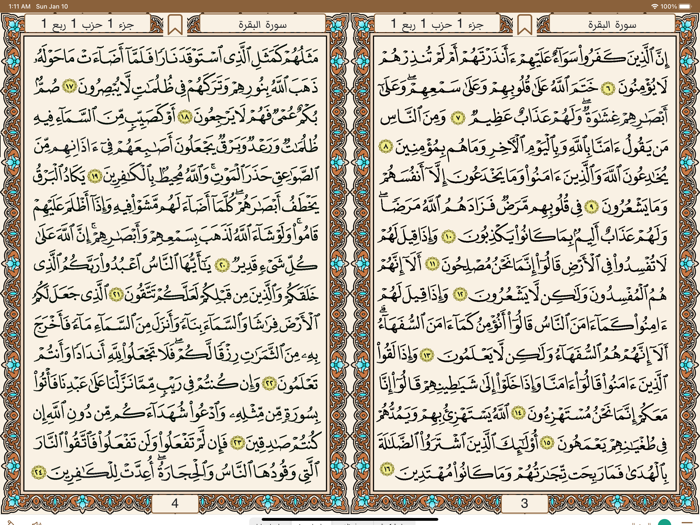 1:11 AM Sun Jan 10
100%
سورة البقرة
جزء 1 حزب 1 ربع 1
إِنَّ ٱلَّذِينَ كَفَرُوا۟ سَوَآءٌ عَلَيْهِمْ ءَأَنذَرْتَهُمْ أَمْ لَمْ تُنذِرْهُمْ
لَا يُؤْمِنُونَ ٦ خَتَمَ ٱللَّهُ عَلَىٰ قُلُوبِهِمْ وَعَلَىٰ سَمْعِهِمْ ۖ وَعَلَىٰٓ
أَبْصَٰرِهِمْ غِشَٰوَةٌ ۖ وَلَهُمْ عَذَابٌ عَظِيمٌ ٧ وَمِنَ ٱلنَّاسِ
مَن يَقُولُ ءَامَنَّا بِٱللَّهِ وَبِٱلْيَوْمِ ٱلْءَاخِرِ وَمَا هُم بِمُؤْمِنِينَ ٨
يُخَٰدِعُونَ ٱللَّهَ وَٱلَّذِينَ ءَامَنُوا۟ وَمَا يَخْدَعُونَ إِلَّآ أَنفُسَهُمْ
وَمَا يَشْعُرُونَ ٩ فِى قُلُوبِهِم مَّرَضٌ فَزَادَهُمُ ٱللَّهُ مَرَضًا ۖ
وَلَهُمْ عَذَابٌ أَلِيمٌۢ بِمَا كَانُوا۟ يَكْذِبُونَ ١٠ وَإِذَا قِيلَ لَهُمْ
لَا تُفْسِدُوا۟ فِى ٱلْأَرْضِ قَالُوٓا۟ إِنَّمَا نَحْنُ مُصْلِحُونَ ١١ أَلَآ إِنَّهُمْ
هُمُ ٱلْمُفْسِدُونَ وَلَٰكِن لَّا يَشْعُرُونَ ١٢ وَإِذَا قِيلَ لَهُمْ
ءَامِنُوا۟ كَمَآ ءَامَنَ ٱلنَّاسُ قَالُوٓا۟ أَنُؤْمِنُ كَمَآ ءَامَنَ ٱلسُّفَهَآءُ ۗ
أَلَآ إِنَّهُمْ هُمُ ٱلسُّفَهَآءُ وَلَٰكِن لَّا يَعْلَمُونَ ١٣ وَإِذَا لَقُوا۟
ٱلَّذِينَ ءَامَنُوا۟ قَالُوٓا۟ ءَامَنَّا وَإِذَا خَلَوْا۟ إِلَىٰ شَيَٰطِينِهِمْ قَالُوٓا۟ إِنَّا
مَعَكُمْ إِنَّمَا نَحْنُ مُسْتَهْزِءُونَ ١٤ ٱللَّهُ يَسْتَهْزِئُ بِهِمْ وَيَمُدُّهُمْ
فِى طُغْيَٰنِهِمْ يَعْمَهُونَ ١٥ أُو۟لَٰٓئِكَ ٱلَّذِينَ ٱشْتَرَوُا۟ ٱلضَّلَٰلَةَ
بِٱلْهُدَىٰ فَمَا رَبِحَت تِّجَٰرَتُهُمْ وَمَا كَانُوا۟ مُهْتَدِينَ ١٦
3
سورة البقرة
جزء 1 حزب 1 ربع 1
مَثَلُهُمْ كَمَثَلِ ٱلَّذِى ٱسْتَوْقَدَ نَارًا فَلَمَّآ أَضَآءَتْ مَا حَوْلَهُۥ
ذَهَبَ ٱللَّهُ بِنُورِهِمْ وَتَرَكَهُمْ فِى ظُلُمَٰتٍ لَّا يُبْصِرُونَ ١٧ صُمٌّۢ
بُكْمٌ عُمْىٌ فَهُمْ لَا يَرْجِعُونَ ١٨ أَوْ كَصَيِّبٍ مِّنَ ٱلسَّمَآءِ فِيهِ
ظُلُمَٰتٌ وَرَعْدٌ وَبَرْقٌ يَجْعَلُونَ أَصَٰبِعَهُمْ فِىٓ ءَاذَانِهِم مِّنَ
ٱلصَّوَٰعِقِ حَذَرَ ٱلْمَوْتِ ۚ وَٱللَّهُ مُحِيطٌۢ بِٱلْكَٰفِرِينَ ١٩ يَكَادُ ٱلْبَرْقُ
يَخْطَفُ أَبْصَٰرَهُمْ ۖ كُلَّمَآ أَضَآءَ لَهُم مَّشَوْا۟ فِيهِ وَإِذَآ أَظْلَمَ عَلَيْهِمْ
قَامُوا۟ ۚ وَلَوْ شَآءَ ٱللَّهُ لَذَهَبَ بِسَمْعِهِمْ وَأَبْصَٰرِهِمْ ۚ إِنَّ ٱللَّهَ عَلَىٰ
كُلِّ شَىْءٍ قَدِيرٌ ٢٠ يَٰٓأَيُّهَا ٱلنَّاسُ ٱعْبُدُوا۟ رَبَّكُمُ ٱلَّذِى
خَلَقَكُمْ وَٱلَّذِينَ مِن قَبْلِكُمْ لَعَلَّكُمْ تَتَّقُونَ ٢١ ٱلَّذِى جَعَلَ لَكُمُ
ٱلْأَرْضَ فِرَٰشًا وَٱلسَّمَآءَ بِنَآءً وَأَنزَلَ مِنَ ٱلسَّمَآءِ مَآءً فَأَخْرَجَ
بِهِۦ مِنَ ٱلثَّمَرَٰتِ رِزْقًا لَّكُمْ ۖ فَلَا تَجْعَلُوا۟ لِلَّهِ أَندَادًا وَأَنتُمْ
تَعْلَمُونَ ٢٢ وَإِن كُنتُمْ فِى رَيْبٍ مِّمَّا نَزَّلْنَا عَلَىٰ عَبْدِنَا فَأْتُوا۟
بِسُورَةٍ مِّن مِّثْلِهِۦ وَٱدْعُوا۟ شُهَدَآءَكُم مِّن دُونِ ٱللَّهِ إِن
كُنتُمْ صَٰدِقِينَ ٢٣ فَإِن لَّمْ تَفْعَلُوا۟ وَلَن تَفْعَلُوا۟ فَٱتَّقُوا۟ ٱلنَّارَ
ٱلَّتِى وَقُودُهَا ٱلنَّاسُ وَٱلْحِجَارَةُ ۖ أُعِدَّتْ لِلْكَٰفِرِينَ ٢٤
4